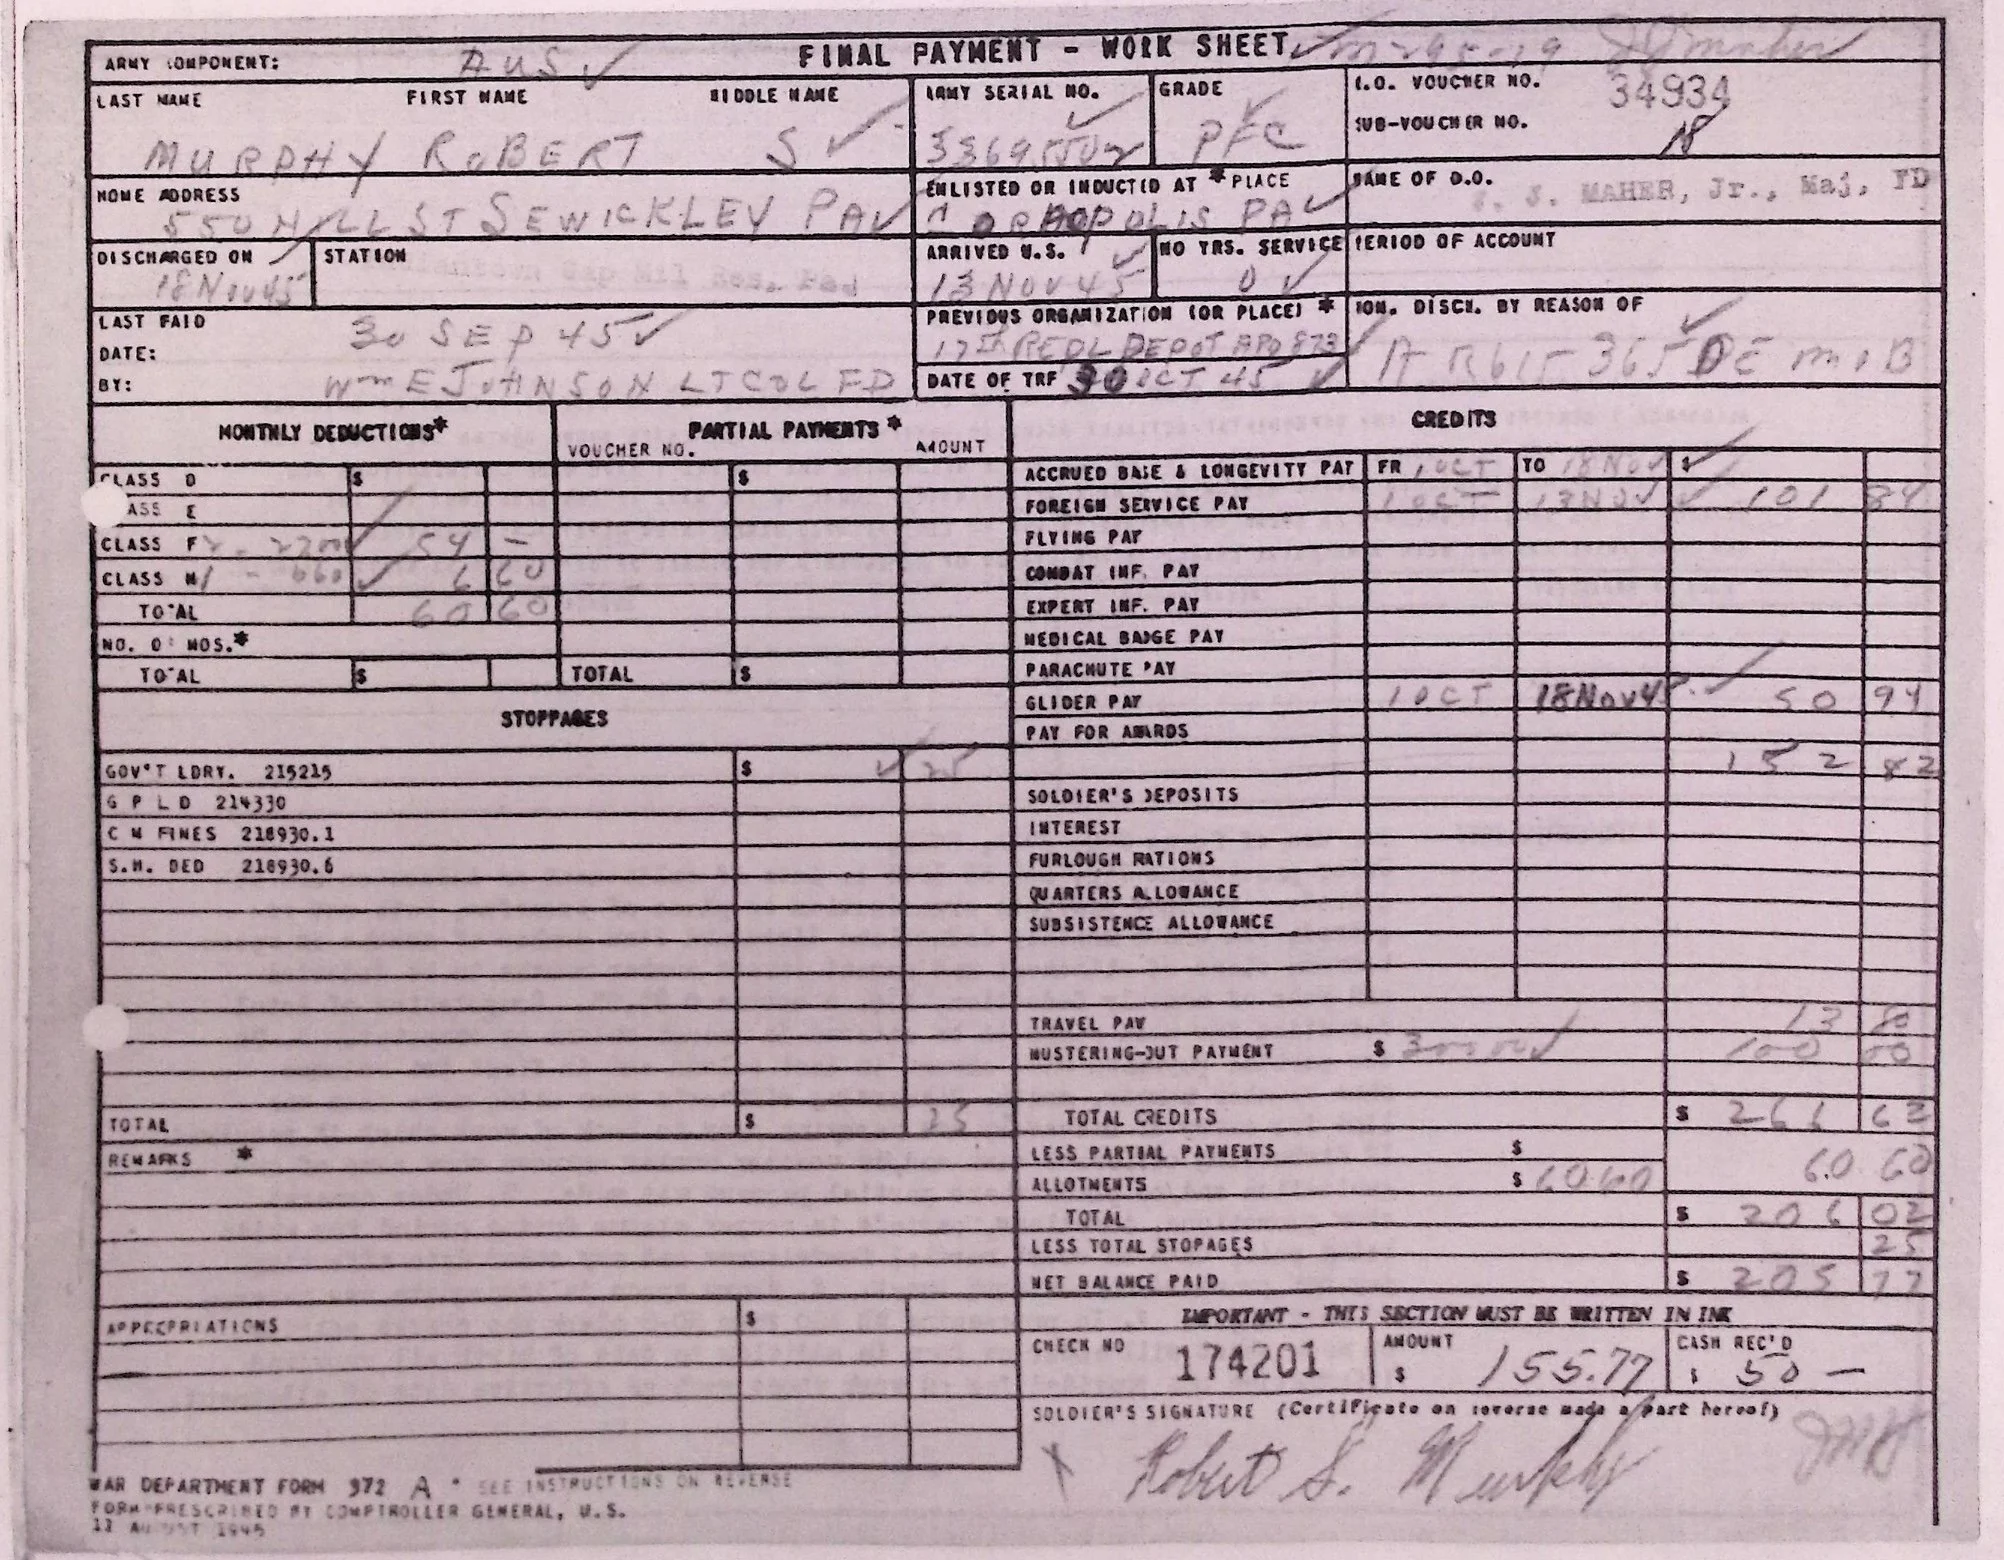 ARMY COMPONENT: AUS
FINAL PAYMENT - WORK SHEET
LAST NAME FIRST NAME MIDDLE NAME
MURPHY ROBERT S
ARMY SERIAL NO.
GRADE
PFC
I.O. VOUCHER NO. 34934
SUB-VOUCHER NO. 18
HOME ADDRESS
550 HILL ST SEWICKLEY PA
ENLISTED OR INDUCTED AT * PLACE
CORAOPOLIS PA
NAME OF D.O.
S. MAHER, Jr., Maj, FD
DISCHARGED ON
18 NOV 45
STATION
Gap Mil Res,
ARRIVED U.S.
13 NOV 45
NO YRS. SERVICE
0
PERIOD OF ACCOUNT
LAST PAID
DATE: 30 SEP 45
BY: WM E JOHNSON LT COL FD
PREVIOUS ORGANIZATION (OR PLACE) *
17TH REPL DEPOT APO 873
DATE OF TRF 30 OCT 45
HON. DISCH. BY REASON OF
AR 615-365 DEMOB
MONTHLY DEDUCTIONS*
CLASS D $
CLASS E
CLASS F 2 - 2700 54 -
CLASS N 1 - 660 6 60
TOTAL 60 60
NO. OF MOS.*
TOTAL $
PARTIAL PAYMENTS*
VOUCHER NO. AMOUNT
$
TOTAL $
STOPPAGES
GOV'T LDRY. 215215 $ 25
G P L D 214330
C M FINES 218930.1
S.H. DED 218930.6
TOTAL $ 25
REMARKS *
APPROPRIATIONS $
CREDITS
ACCRUED BASE & LONGEVITY PAY FR 1 OCT TO 18 NOV $
FOREIGN SERVICE PAY 1 OCT 13 NOV 101 84
FLYING PAY
COMBAT INF. PAY
EXPERT INF. PAY
MEDICAL BADGE PAY
PARACHUTE PAY
GLIDER PAY 1 OCT 18 Nov 45 50 94
PAY FOR AWARDS
152 82
SOLDIER'S DEPOSITS
INTEREST
FURLOUGH RATIONS
QUARTERS ALLOWANCE
SUBSISTENCE ALLOWANCE
TRAVEL PAY 13 80
MUSTERING-OUT PAYMENT $ 300 00 100 00
TOTAL CREDITS $ 266 62
LESS PARTIAL PAYMENTS $
ALLOTMENTS $ 60.60 60 60
TOTAL $ 206 02
LESS TOTAL STOPAGES 25
NET BALANCE PAID $ 205 77
IMPORTANT - THIS SECTION MUST BE WRITTEN IN INK
CHECK NO 174201
AMOUNT $ 155.77
CASH REC'D $ 50 -
SOLDIER'S SIGNATURE (Certificate on reverse made a part hereof)
Robert S. Murphy
WAR DEPARTMENT FORM 372 A * SEE INSTRUCTIONS ON REVERSE
FORM PRESCRIBED BY COMPTROLLER GENERAL, U.S.
AUGUST 1945